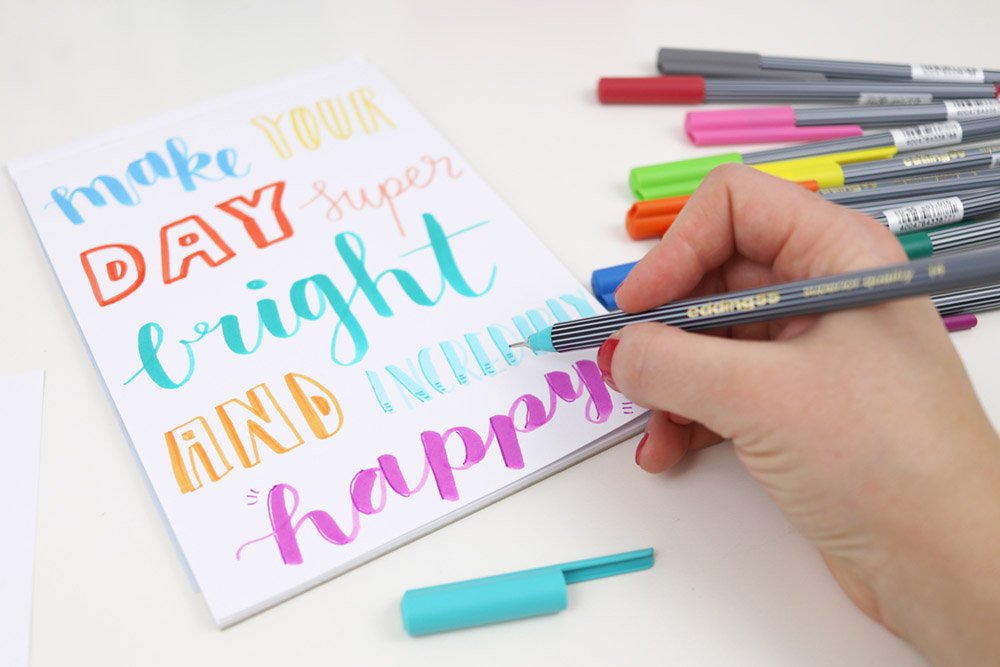 make YOUR
DAY super
bright
AND INCREDIBLY
happy
edding 55